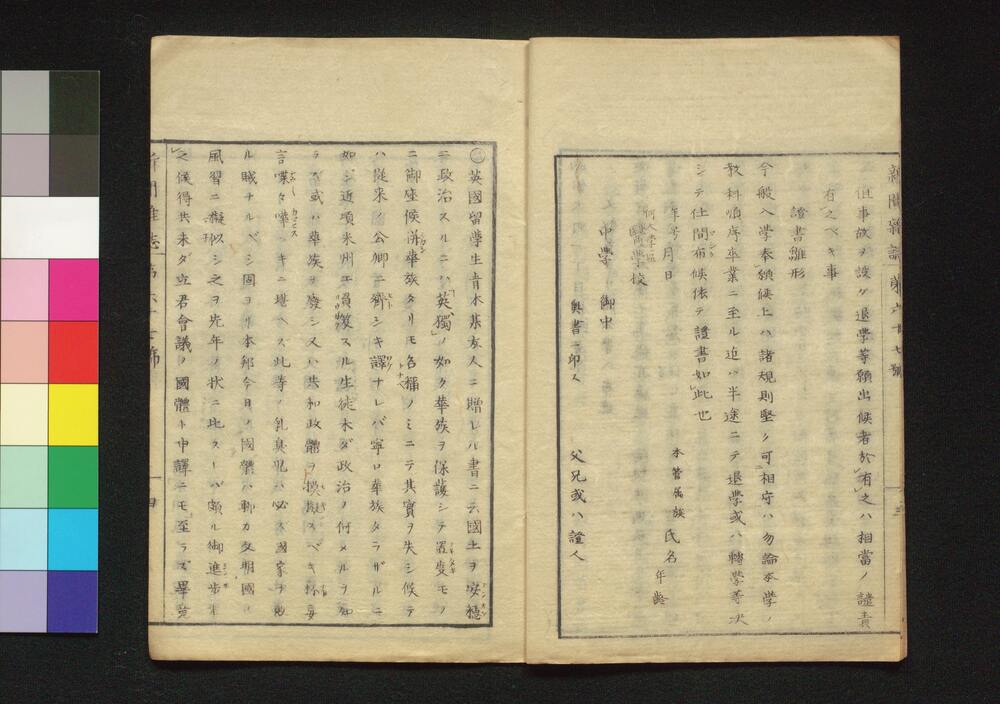 新聞雜誌第六十七號
但事故ヲ設ケ退學等願出候者於有之ハ相當ノ譴責
有之ベキ事
證書雛形
今般入學奉願候上ハ諸規則堅ク可相守ハ勿論本學ノ
教科順序卒業ニ至ル迄ハ半途ニテ退學或ハ轉學等決
シテ仕間布候依テ證書如此也
年号月日
本管属族 氏名 年齢
何大學區
醫學校
中學 御中
奥書印人 父兄或ハ證人
英國留學生青木某友人ニ贈レル書ニ云國土ヲ安穏
ニ政治スルニハ英獨ノ如ク華族ヲ保護シテ置度モノ
ニ御座候併華族タリモ名稱ノミニテ其實ヲ失シ候テ
ハ從来ノ公卿ニ齊シキ譯ナレバ寧ロ華族タラザルニ
如ジ近頃米州エ員笈スル生徒未ダ政治ノ何メルヲ知
ラズ或ハ華族ヲ廢シ又ハ共和政體ヲ模擬スベキ抔妄
言喋々嘩シキニ堪ヘス此等ノ乳臭児ハ必ス國家ヲ敗
ル賊ナルベシ固ヨリ本邦今日ノ國禁ハ聊カ文明國ノ
風習ニ擬似シ之ヲ先年ノ状ニ比スレバ頗ル御進歩
之候得共未ダ立君會議ノ國體ト申譯ニモ至ラズ畢竟